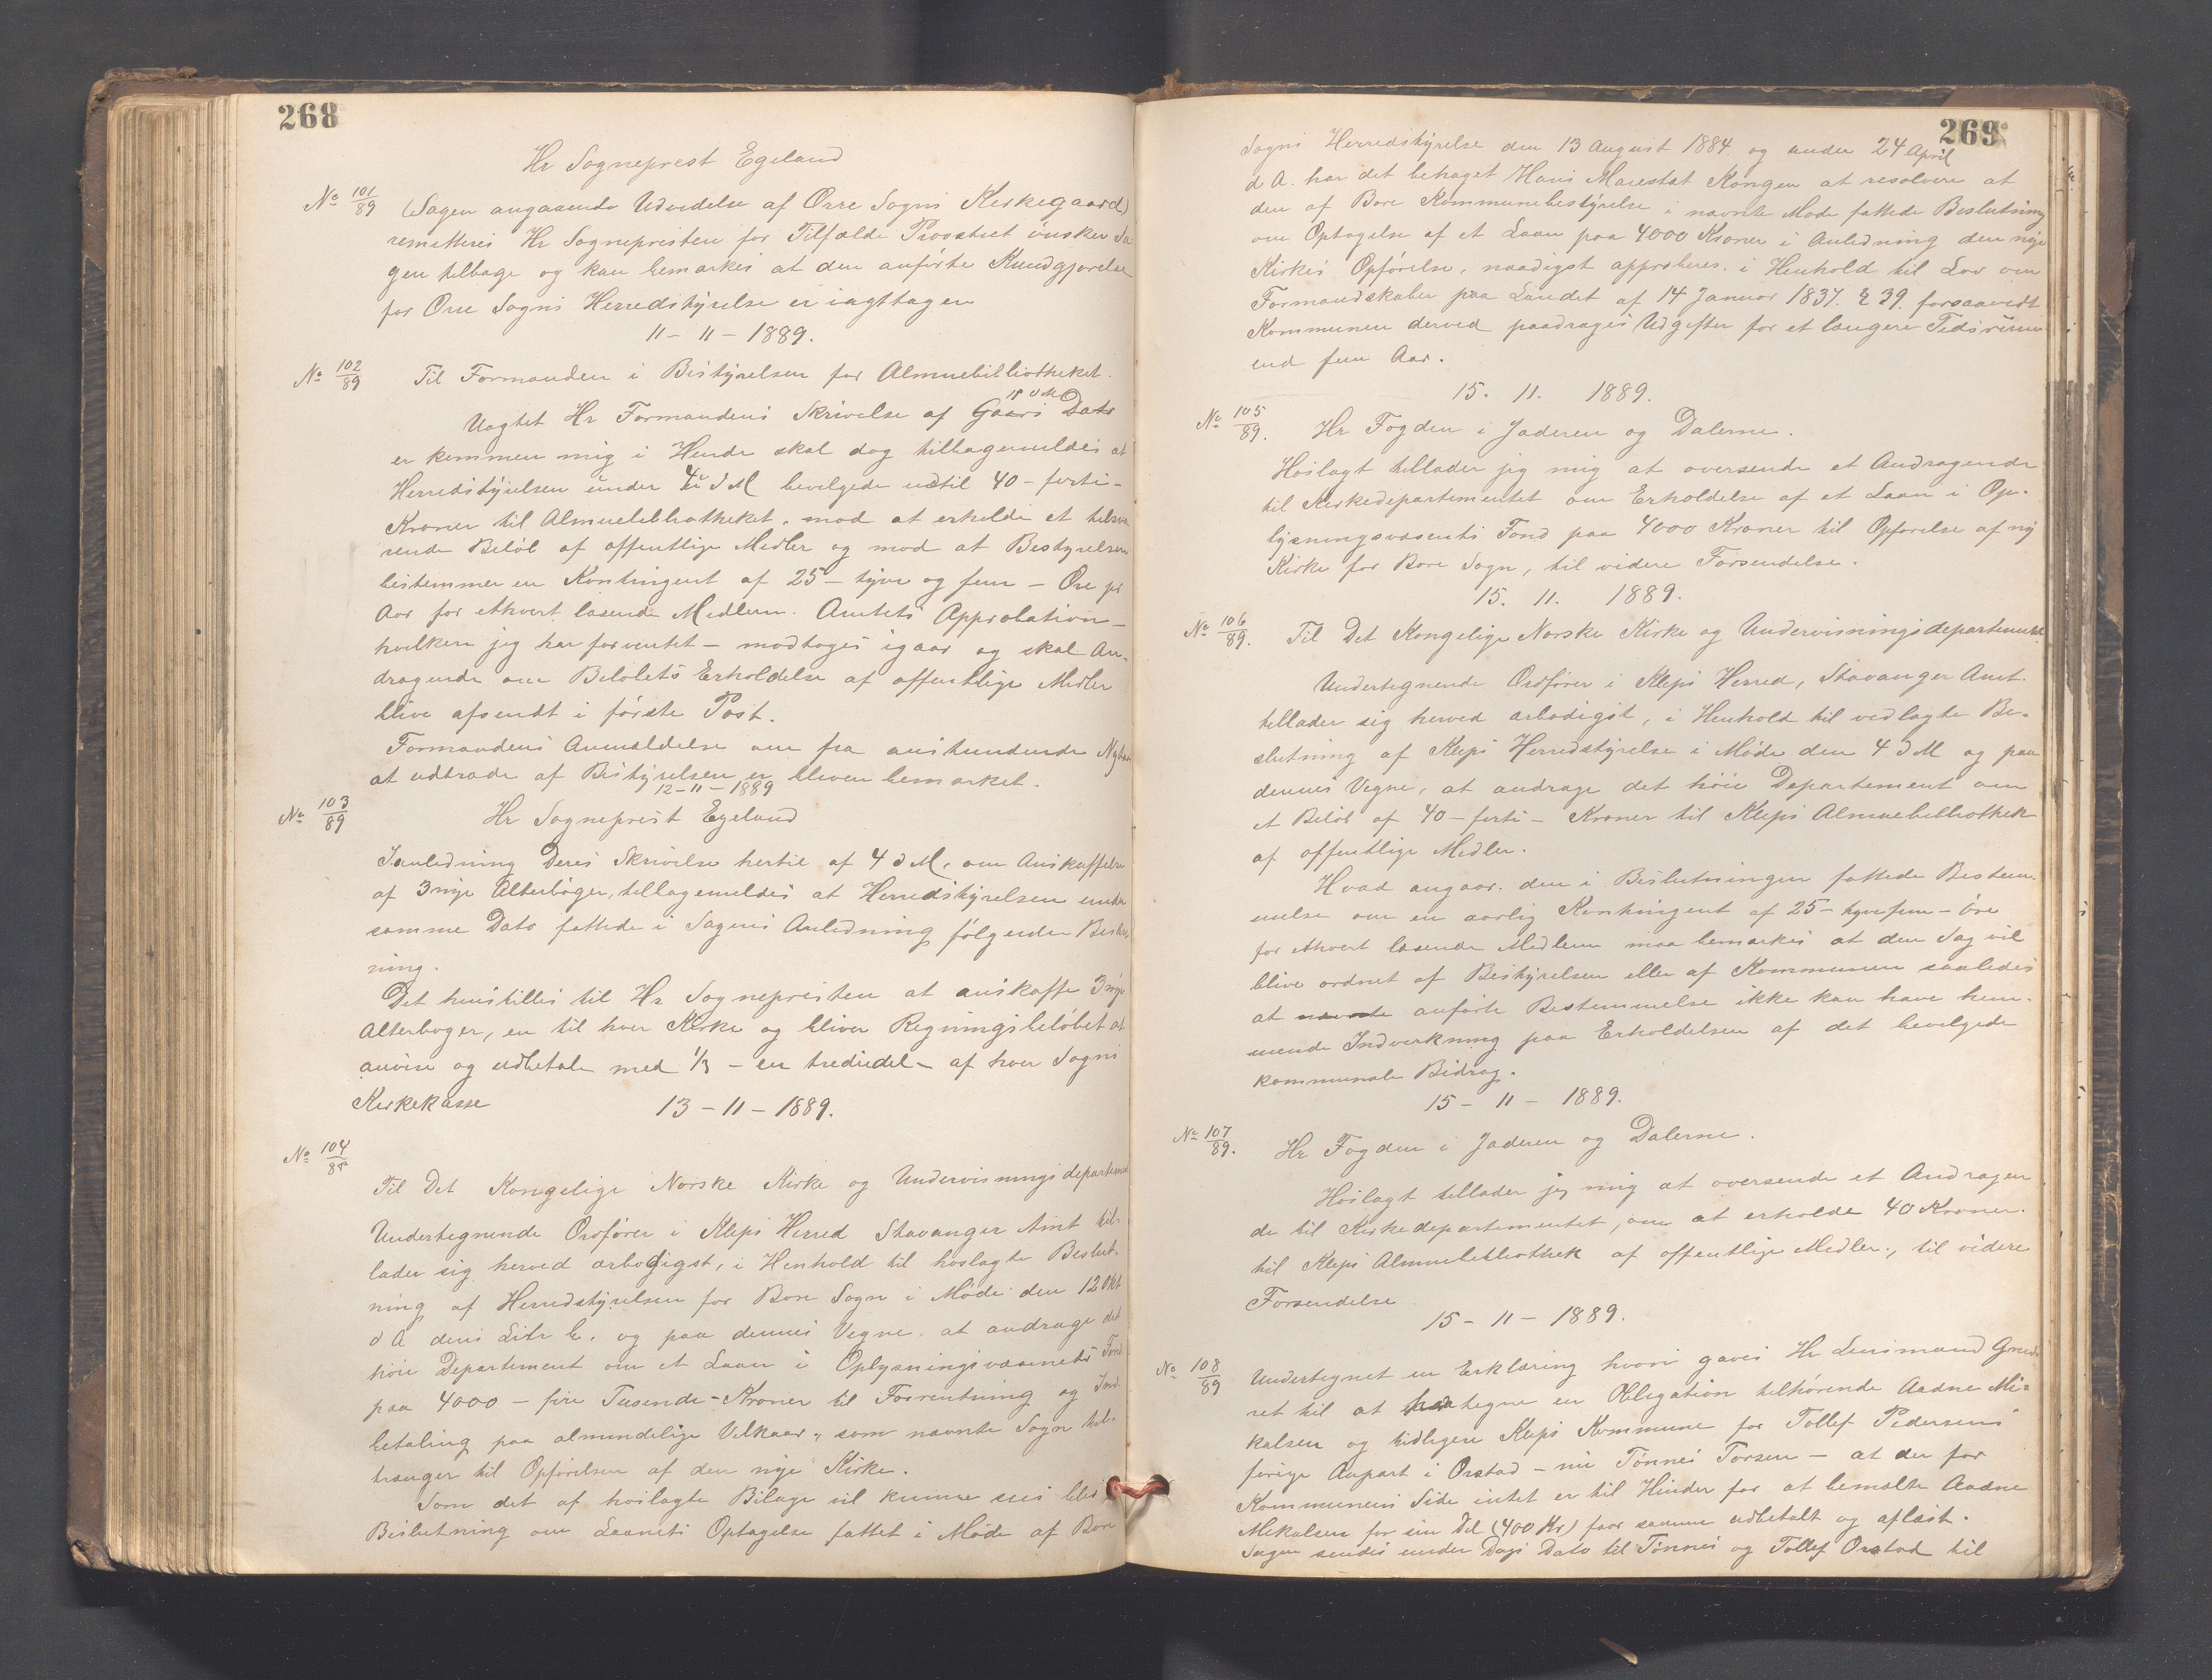 268
Hr Sogneprest Egeland
No 101/89 (Sagen angaaende Udvidelse af Orre Sogns Kirkegaard)
remitteres Hr Sognepresten for Tilfælde Provstiet ønsker Sa-
gen tilbage og kan bemærkes at den anførte Kundgjørelse
for Orre Sogns Herredstyrelse er iagttagen
11-11-1889.
No 102/89 Til Formanden i Bestyrelsen for Almuebibliotheket.
Uagtet Hr Formandens Skrivelse af Gaars Dato
er kommen mig i Hænde skal dog tilbagemeldes at
Herredstyrelsen under 4 d M bevilgede indtil 40 - forti -
Kroner til Almuebibliotheket, mod at erholde et tilsva
rende Beløb af offentlige Midler og mod at Bestyrelsen
bestemmer en Kontingent af 25 - tyve og fem - Øre pr
Aar for ethvert læsende Medlem. Amtets Approbation -
hvilken jeg har forventet - modtoges igaar og skal An-
dragende om Beløbets Erholdelse af offentlige Midler
blive afsendt i første Post.
Formandens Anmeldelse om fra anstundende Nytaar
at udtræde af Bestyrelsen er bleven bemærket.
12-11-1889
No 103/89 Hr Sogneprest Egeland
I anledning Deres Skrivelse hertil af 4 d M. om Anskaffelse
af 3 nye Alterbøger, tilbagemeldes at Herredstyrelsen under
samme Dato fattede i Sagens Anledning følgende Beslut-
ning.
Det henstilles til Hr Sognepresten at anskaffe 3 nye
Alterbøger, en til hver Kirke og bliver Regningsbeløbet at
anvise og udbetale med 1/3 - en trediedel - af hver Sogns
Kirkekasse
13-11-1889.
No 104/89
Til Det Kongelige Norske Kirke og Undervisningsdepartement
Undertegnende Ordfører i Kleps Herred Stavanger Amt til-
lader sig herved ærbødigst, i Henhold til hoslagte Beslut-
ning af Herredstyrelsen for Bore Sogn i Møde den 12 Okt
d A dens Litr b. og paa dennes Vegne, at andrage det
høie Departement om et Laan i Oplysningsvæsenets Fond
paa 4000 - fire Tusende - Kroner til Forrentning og Ind-
betaling paa almindelige Vilkaar, som nævnte Sogn til-
trænger til Opførelsen af den nye Kirke.
Som det af hoslagte Bilage vil kunne sees blev
Beslutning om Laanets Optagelse fattet i Møde af Bore
269
Sogns Herredstyrelse den 13 August 1884. og under 24 April
d A. har det behaget Hans Maiestæt Kongen at resolvere at
den af Bore Kommunebestyrelse i nævnte Møde fattede Beslutning
om Optagelse af et Laan paa 4000 Kroner i Anledning den nye
Kirkes Opførelse, naadigst approberes. i Henhold til Lov om
Formandskaber paa Landet af 14 Januar 1837. § 39. forsaavidt
Kommunen derved paadrages Udgifter for et længere Tidsrum
end fem Aar.
15. 11. 1889.
No 105/89. Hr Fogden i Jæderen og Dalerne.
Hoslagt tillader jeg mig at oversende et Andragende
til Kirkedepartementet om Erholdelse af et Laan i Op-
lysningsvæsents Fond paa 4000 Kroner til Opførelse af ny
Kirke for Bore Sogn, til videre Forsendelse.
15. 11. 1889.
No 106/89. Til Det Kongelige Norske Kirke og Undervisningsdepartement
Undertegnende Ordfører i Kleps Herred, Stavanger Amt.
tillader sig herved ærbødigst, i Henhold til vedlagte Be-
slutning af Kleps Herredstyrelse i Møde den 4 d M og paa
dennes Vegne, at andrage det høie Departement om
et Beløb af 40 - forti - Kroner til Kleps Almuebibliothek
af offentlige Midler.
Hvad angaar. den i Beslutningen fattede Bestem-
melse om en aarlig Kontingent af 25 - tyvefem - Øre
for ethvert læsende Medlem maa bemærkes at den Sag vil
blive ordnet af Bestyrelsen eller af Kommunen saaledes
at nævnte anførte Bestemmelse ikke kan have hem-
mende Indvirkning paa Erholdelsen af det bevilgede
kommunale Bidrag.
15 - 11 - 1889.
No 107/89. Hr Fogden i Jæderen og Dalerne.
Hoslagt tillader jeg mig at oversende et Andragen
de til Kirkedepartementet, om at erholde 40 Kroner.
til Kleps Almuebibliothek af offentlige Midler., til videre
Forsendelse
15 - 11 - 1889.
No 108/89 Undertegnet en Erklæring hvori gaves Hr Lensmand Grude
ret til at tegne en Obligation tilhørende Aadne Mi-
kalsen og tidligere Kleps Kommune for Tollef Pedersens
forige Anpart i Orstad - nu Tønnes Torsen - at der for
Kommunens Side intet er til Hinder for at bemelte Aadne
Mikalsen for sin Del (400 Kr) faar samme udbetalt og aflæst.
Sagen sendes under Dags Dato til Tønnes og Tollef Orstad til